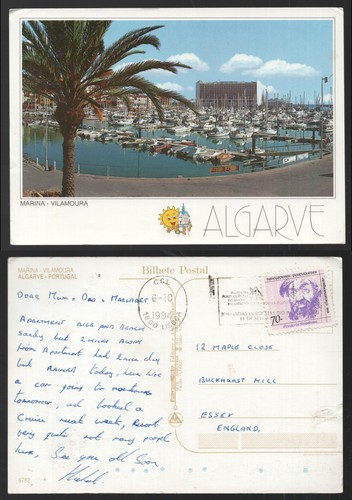 MARINA - VILAMOURA
ALGARVE
MARINA - VILAMOURA
ALGARVE - PORTUGAL
Bilhete Postal
CCL
6-10
1994
1800 LISBOA
70.-
DEAR MUM, DAD & MARGARET
APARTMENT NICE AND BEACH
sandy but 2 miles away
from Apartment had 2 nice day
but RAINED today, have hire
a car going to
tomorrow, and booked a
Cruise next week, Resort
very quiet not many people
here, See you all Soon
12 MAPLE CLOSE
BUCKHURST HILL
ESSEX
ENGLAND.